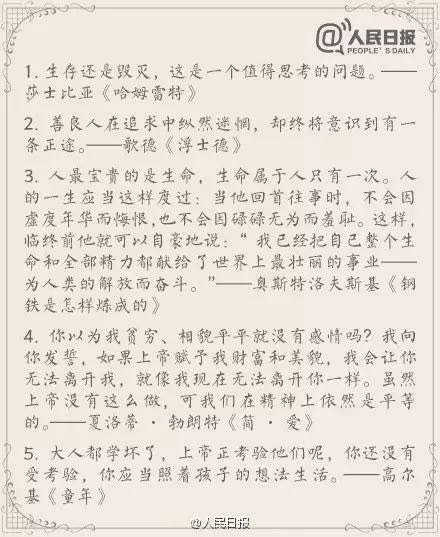 @人民日报
PEOPLE'S DAILY
1. 生存还是毁灭，这是一个值得思考的问题。——
莎士比亚《哈姆雷特》
2. 善良人在追求中纵然迷惘，却终将意识到有一
条正途。——歌德《浮士德》
3. 人最宝贵的是生命，生命属于人只有一次。人
的一生应当这样度过：当他回首往事时，不会因
虚度年华而悔恨,也不会因碌碌无为而羞耻。这样，
临终前他就可以自豪地说：“ 我已经把自己整个生
命和全部精力都献给了世界上最壮丽的事业——
为人类的解放而奋斗。”——奥斯特洛夫斯基《钢
铁是怎样炼成的》
4. 你以为我贫穷、相貌平平就没有感情吗？我向
你发誓，如果上帝赋予我财富和美貌，我会让你
无法离开我，就像我现在无法离开你一样。虽然
上帝没有这么做，可我们在精神上依然是平等
的。——夏洛蒂 · 勃朗特《简 · 爱》
5. 大人都学坏了，上帝正考验他们呢，你还没有
受考验，你应当照着孩子的想法生活。——高尔
基《童年》
@人民日报